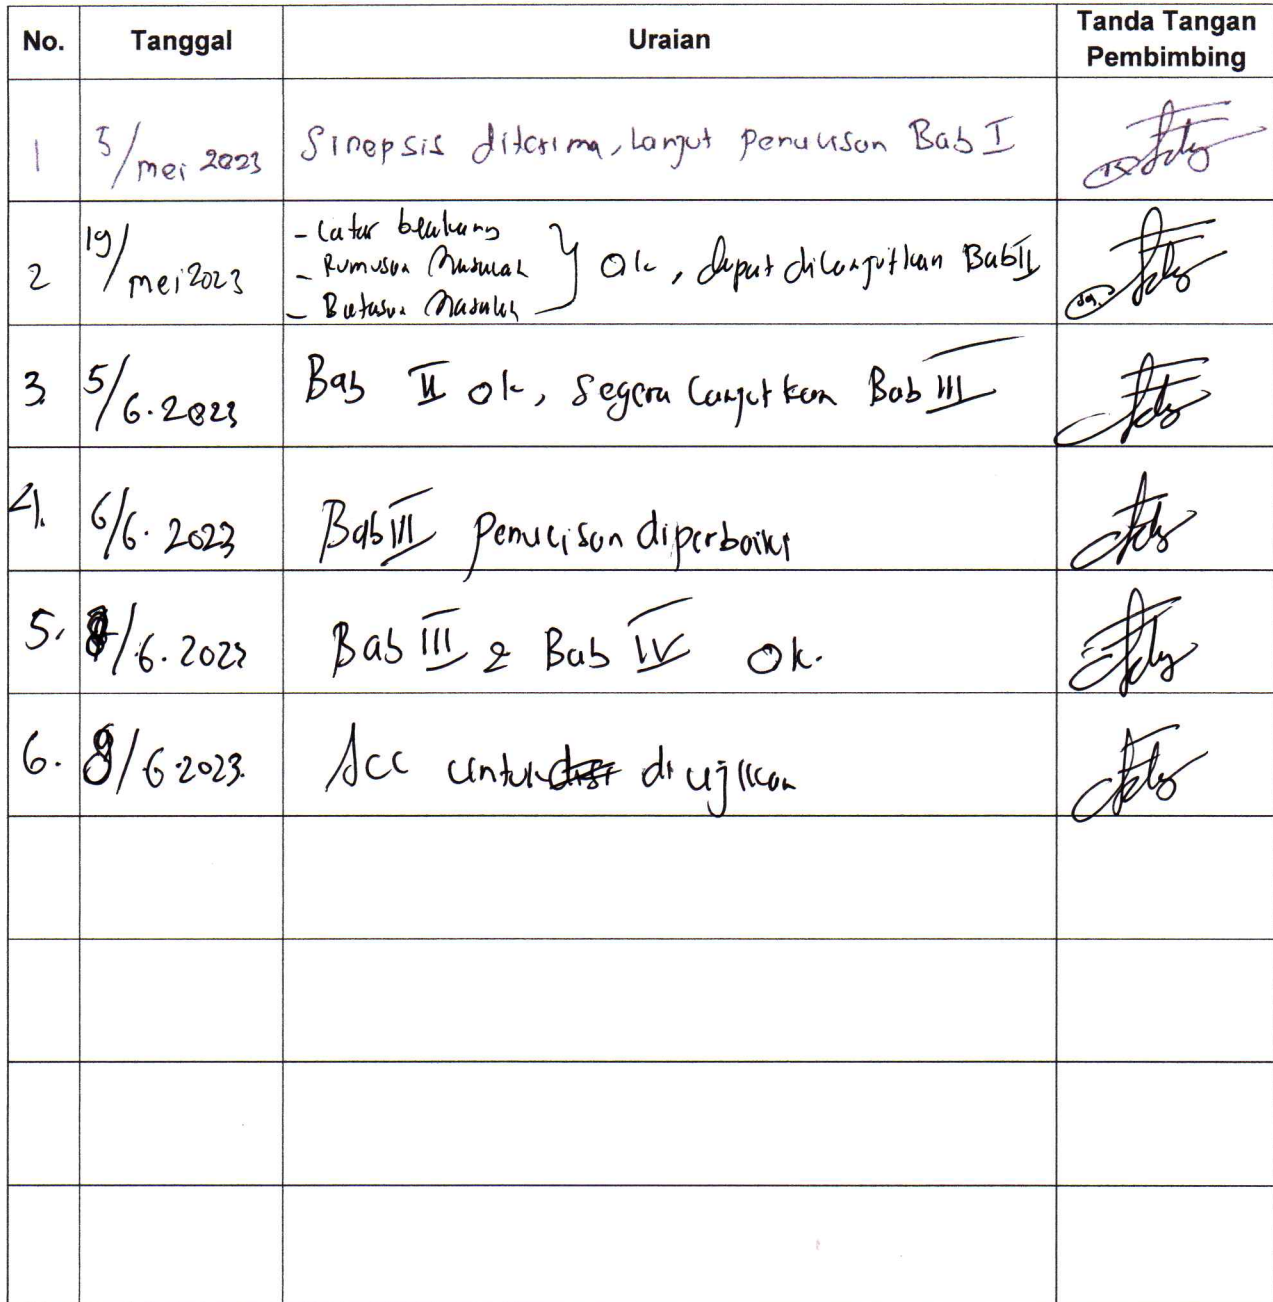 No. Tanggal Uraian Tanda Tangan Pembimbing
1 5/mei 2023 Sinopsis diterima, lanjut penulisan Bab I
2 19/mei 2023 - Latar belakang
- Rumusan Masalah } Ok, dapat dilanjutkan Bab II
- Batasan Masalah
3. 5/6.2023 Bab II Ok, segera lanjutkan Bab III
4. 6/6.2023 Bab III penulisan diperbaiki
5. /6.2023 Bab III & Bab IV Ok.
6. 9/6.2023. Acc untuk di ujikan